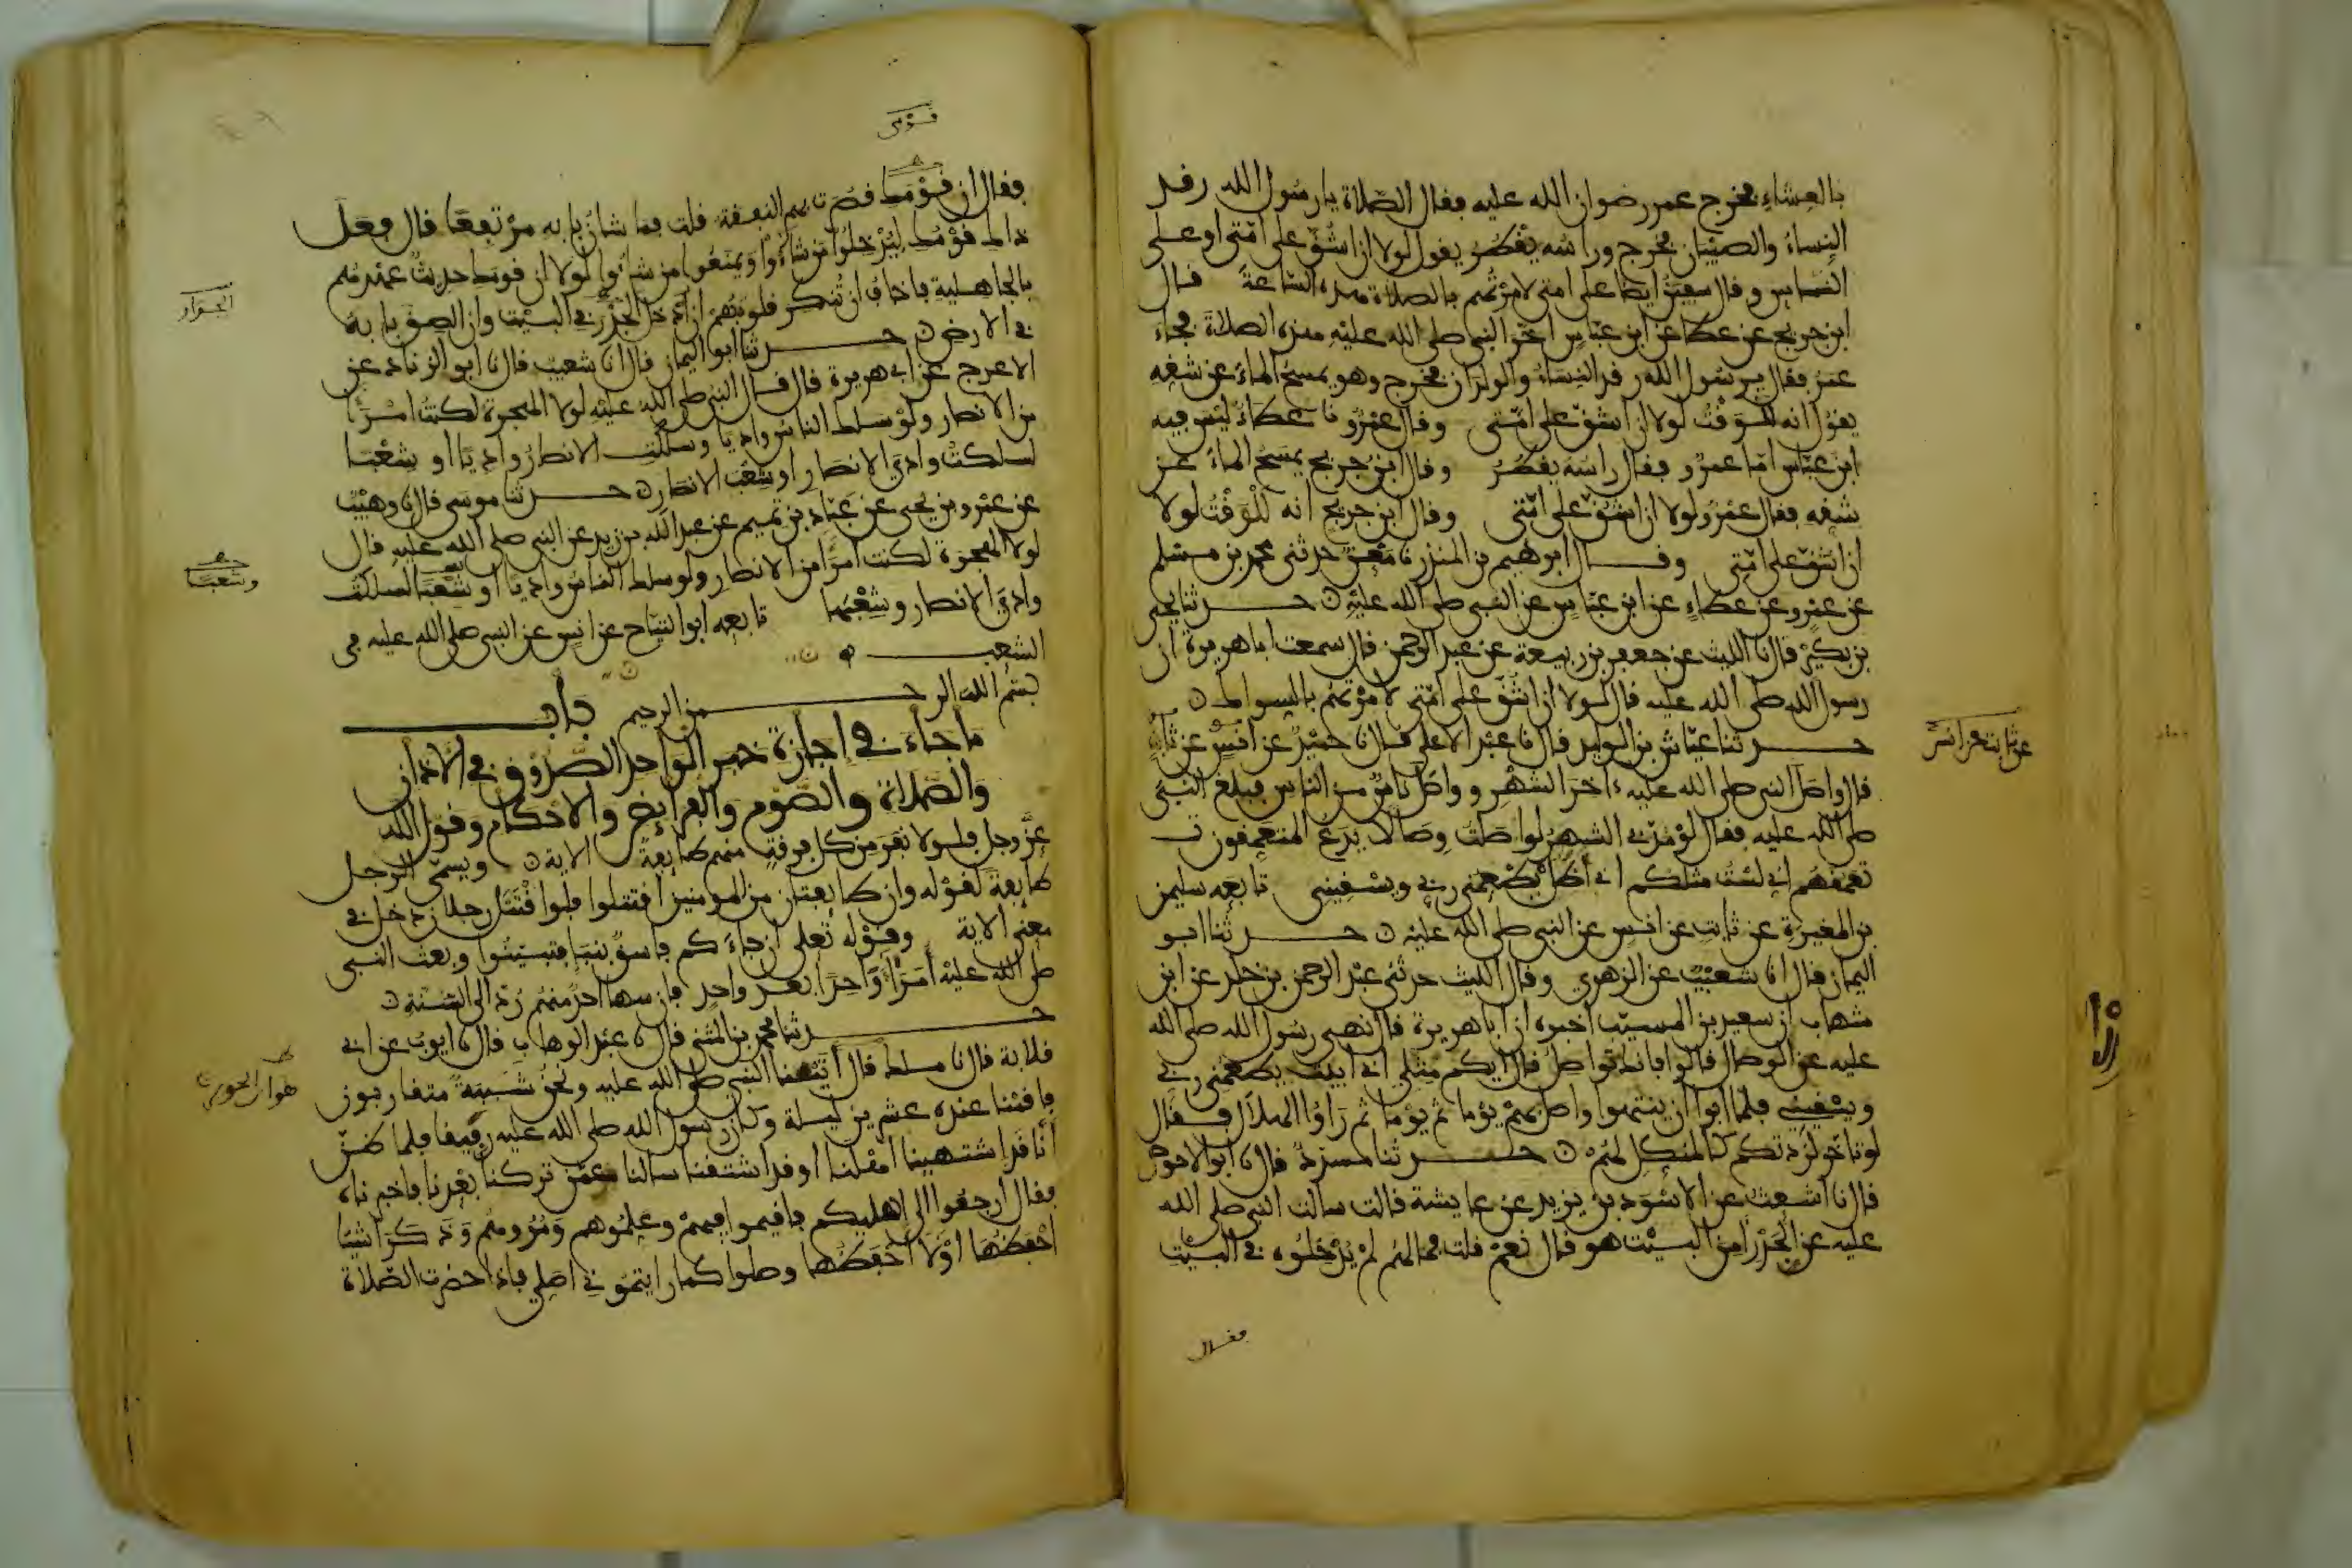 بالعشاء فخرج عمر رضوان الله عليه فقال الصلاة يا رسول الله رقد
النساء والصبيان فخرج وراسه يقطر يقول لولا ان اشق على امتي او على
الناس وقال سفين ايضا على امتي لامرتهم بالصلاة هذه الساعة قال
ابن جريج عن عطا عن ابن عباس اخر النبي صلى الله عليه هذه الصلاة فجاء
عمر فقال يرسول الله رقد النساء والولدان فخرج وهو يمسح الماء عن شقه
يقول انه للوقت لولا ان اشق على امتي وقال عمرو نا عطاء ليس فيه
ابن عباس اما عمرو فقال راسه يقطر وقال ابن جريج يمسح الماء عن
شقه فقال عمرو لولا ان اشق على امتي وقال ابن جريج انه للوقت لولا
ان اشق على امتي وقال ابرهيم بن المنذر نا معن حدثني محمد بن مسلم
عن عمرو عن عطاء عن ابن عباس عن النبي صلى الله عليه ن حدثنا يحيى
بن بكير قال نا الليث عن جعفر بن ربيعة عن عبد الرحمن قال سمعت ابا هريرة ان
رسول الله صلى الله عليه قال لولا ان اشق على امتي لامرتهم بالسواك ن
حدثنا عياش بن الوليد قال نا عبد الاعلى قال نا حميد عن انس عن ثابت
عن ثابت عن انس
قال واصل النبي صلى الله عليه ءاخر الشهر وواصل ناس من الناس فبلغ النبي
صلى الله عليه فقال لو مد بي الشهر لواصلت وصالا يدع المتعمقون
تعمقهم اني لست مثلكم اني اظل يطعمني ربي ويسقيني تابعه سليمن
بن المغيرة عن ثابت عن انس عن النبي صلى الله عليه ن حدثنا ابو
اليمان قال انا شعيب عن الزهري وقال الليث حدثني عبد الرحمن بن خلد عن ابن
شهاب ان سعيد بن المسيب اخبره ان ابا هريرة قال نهى رسول الله صلى الله
عليه عن الوصال قالوا فانك تواصل قال ايكم مثلي اني ابيت يطعمني ربي
ويسقيني فلما ابوا ان ينتهوا واصل بهم يوما ثم يوما ثم راوا الهلال فقال
لو تاخر لزدتكم كالمنكل لهم ن حدثنا مسدد قال نا ابو الاحوص
قال نا اشعث عن الاسود بن يزيد عن عايشة قالت سالت النبي صلى الله
عليه عن الجدر امن البيت هو قال نعم قلت فما لهم لم يدخلوه في البيت
فقال
قومي
فقال ان قومك قصرت بهم النفقة قلت فما شان بابه مرتفعا قال فعل
ذاك قومك ليدخلوا من شاءوا ويمنعوا من شاءوا لولا ان قومك حديث عهدهم
بالجاهلية فاخاف ان تنكر قلوبهم ان ادخل الجدر في البيت وان الصق بابه
الجدار
في الارض ن حدثنا ابو اليمان قال انا شعيب قال نا ابو الزناد عن
الاعرج عن ابي هريرة قال قال النبي صلى الله عليه لولا الهجرة لكنت امرءا
من الانصار ولو سلك الناس واديا وسلكت الانصار واديا او شعبا
لسلكت وادي الانصار او شعب الانصار ن حدثنا موسى قال نا وهيب
عن عمرو بن يحيى عن عباد بن تميم عن عبد الله بن زيد عن النبي صلى الله عليه قال
لولا الهجرة لكنت امرا من الانصار ولو سلك الناس واديا او شعبا لسلكت
وشعبا
وادي الانصار وشعبها تابعه ابو التياح عن انس عن النبي صلى الله عليه في
الشعب
بسم الله الرحمن الرحيم باب
ما جاء في اجازة خبر الواحد الصدوق في الاذان
والصلاة والصوم والفرايض والاحكام وقول الله
عز وجل فلولا نفر من كل فرقة منهم طايفة الاية ن ويسمى الرجل
طايفة لقوله وان طايفتان من المومنين اقتتلوا فلو اقتتل رجلان دخل في
معنى الاية وقوله تعلى ان جاءكم فاسق بنبإ فتبينوا وبعث النبي
صلى الله عليه امراءه واحدا بعد واحد فان سها احد منهم رد الى السنة ن
حدثنا محمد بن المثنى قال نا عبد الوهاب قال نا ايوب عن ابي
قلابة قال نا ملك قال اتينا النبي صلى الله عليه ونحن شببة متقاربون
هو ابن الحويرث
فاقمنا عنده عشرين ليلة وكان رسول الله صلى الله عليه رفيقا فلما ظن
انا قد اشتهينا اهلنا او قد اشتقنا سالنا عمن تركنا بعدنا فاخبرناه
فقال ارجعوا الى اهليكم فاقيموا فيهم وعلموهم ومروهم وذكر اشيا
احفظها او لا احفظها وصلوا كما رايتموني اصلي فاذا حضرت الصلاة